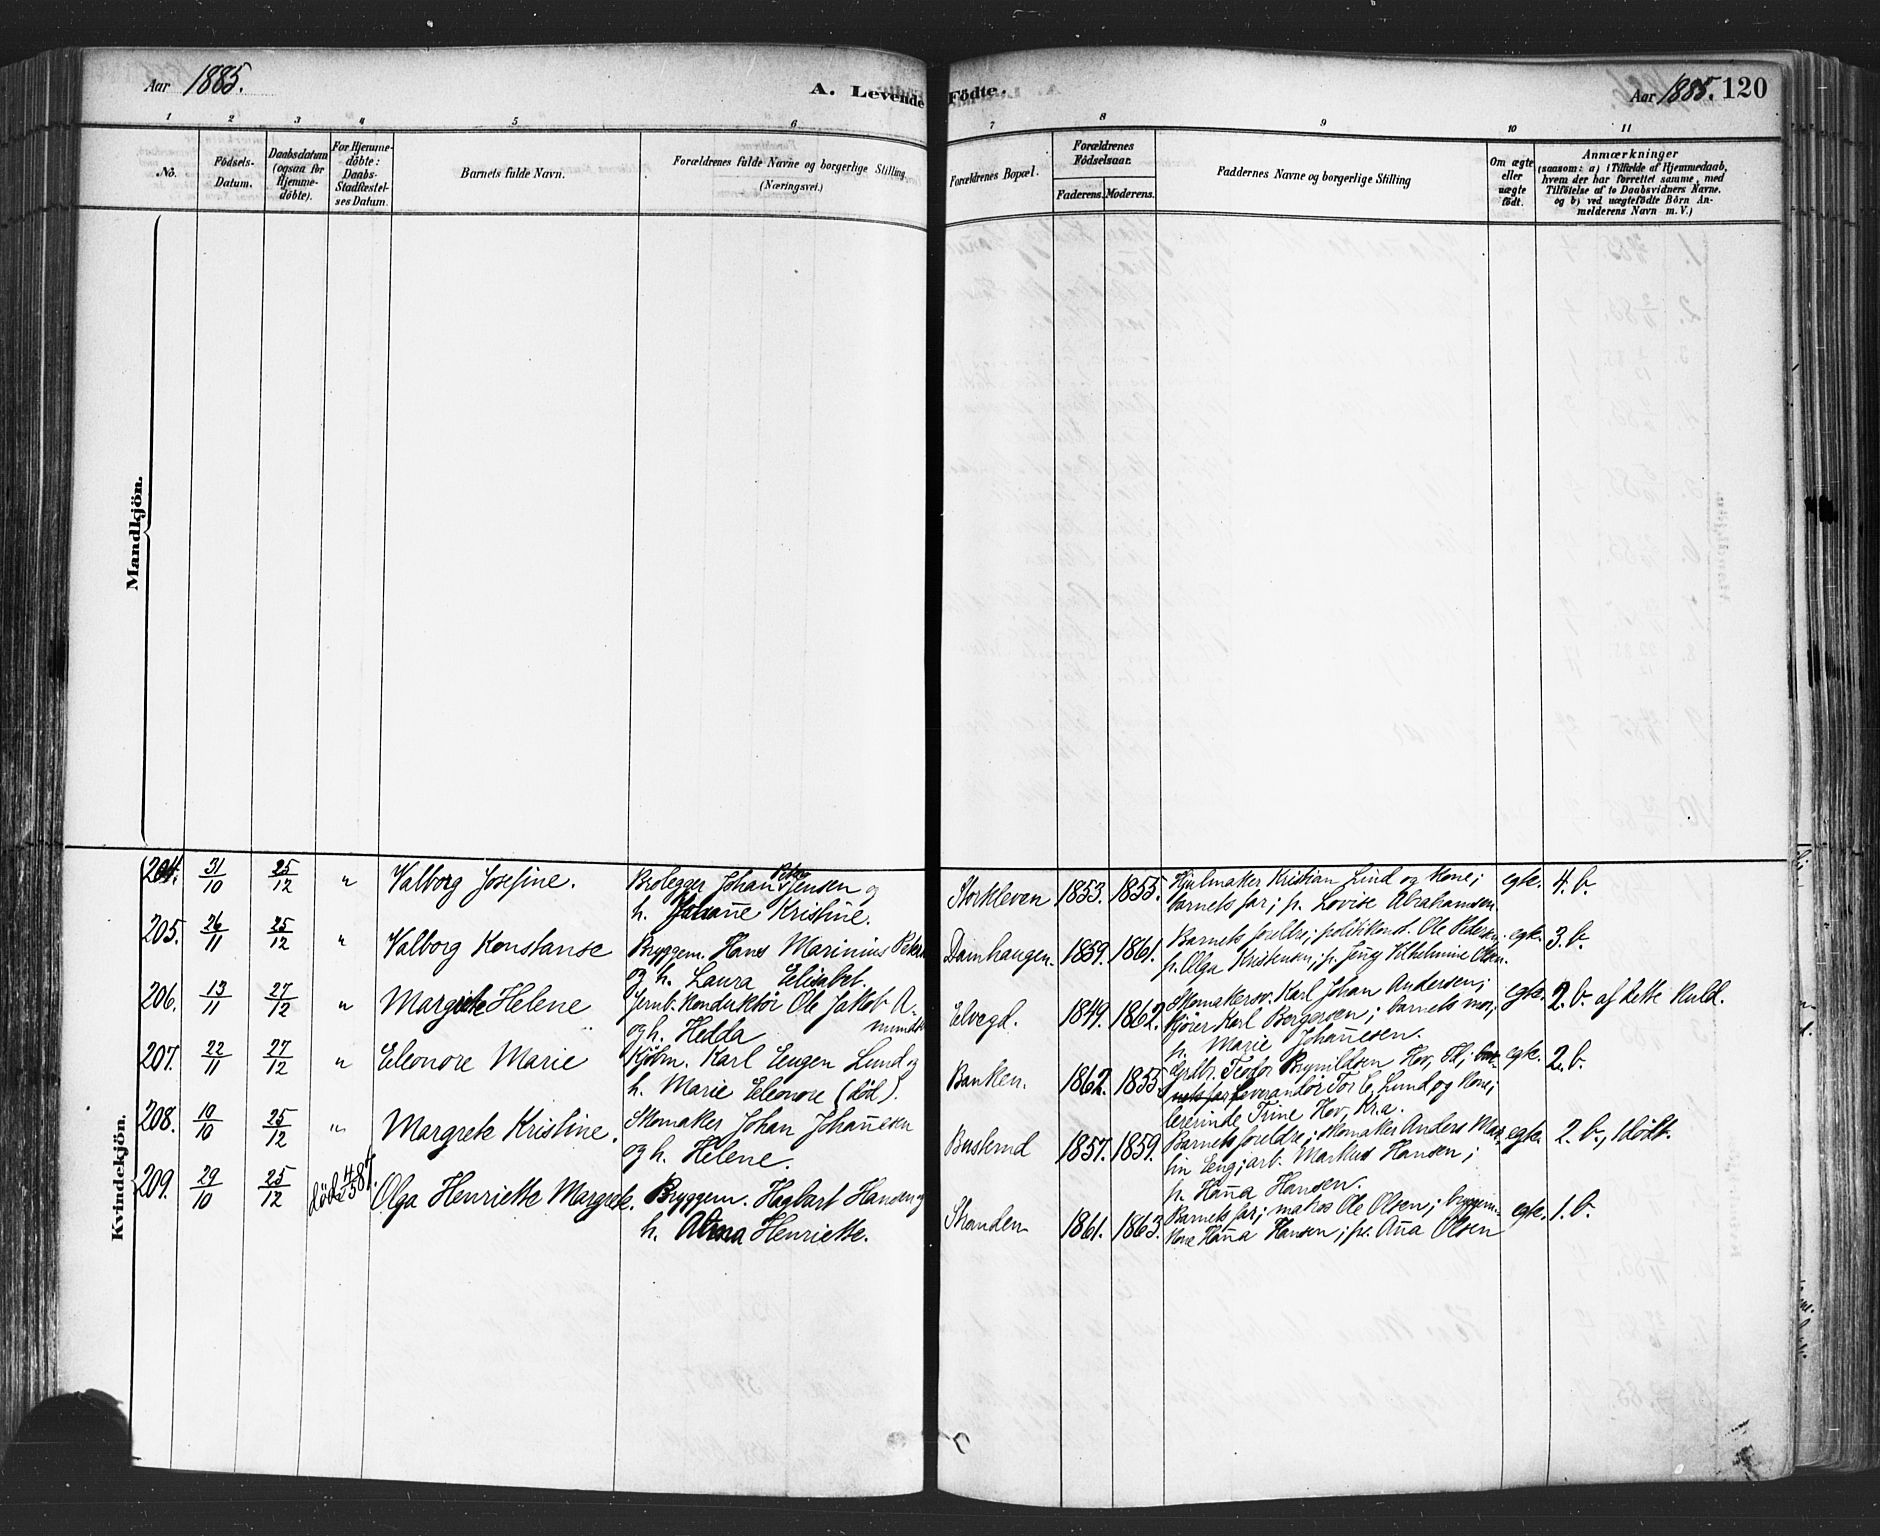 Aar 1885.
A. Levende Födte.
Aar 1885. 120
1 2 3 4 5 6 7 8 9 10 11
No.
Födsels-Datum.
Daabsdatum (ogsaa for Hjemme-döbte).
For Hjemme-döbte: Daabs-Stadfæstel-ses Datum.
Barnets fulde Navn.
Forældrenes fulde Navne og borgerlige Stilling (Næringsvei.)
Forældrenes Bopæl.
Forældrenes Födselsaar.
Faderens. Moderens.
Faddernes Navne og borgerlige Stilling
Om ægte eller uægte födt.
Anmærkninger
(saasom: a) i Tilfælde af Hjemmedaab,
hvem der har forrettet samme, med
Tilföielse af to Daabsvidners Navne.
og b) ved uægtefödte Börn An-
melderens Navn m. V.)
Mandkjön.
Kvindekjön.
204. 31/10 25/12 " Valborg Josefine.
Brolegger Johan Petter Jensen og
h. Johanne Kristine.
Storkleven 1853. 1855.
Hjulmaker Kristian Lind og kone;
barnets far; p. Lovise Abrahamsen.
egte. 4. b.
205. 26/11 25/12 " Valborg Konstanse
Bryggem. Hans Marinius Petersen
og h. Laura Elisabet.
Damhaugen. 1859. 1861.
Barnets foreldre; politikonst. Ole Pedersen.
p. Olga Kristensen; p. Jeny Vilhelmine Olsen.
egte. 3. b.
206. 13/11 27/12 " Margrete Helene
Jernb. konduktör Ole Jakob A-
mundsen
og h. Hedda
Elvegd. 1849. 1862.
Skomakersv. Karl Johan Andersen;
kjörer Karl Borgersen; barnets mor;
p. Marie Johannesen.
egte. 2. b. af dette kuld.
207. 22/11 27/12 " Eleonore Marie
Kjöbm. Karl Eugen Lund og
h. Marie Eleonore (död).
Banken. 1862. 1855.
Grdbr. Teodor Brynildsen Hov, Tl; bar-
nets far; Leverandör Tor C. Lund og kone;
lererinde Trine Hov, Kr.a.
egte. 2. b.
208. 19/10 25/12 " Margrete Kristine.
Skomaker Johan Johannesen
og h. Helene.
Buskerud 1857. 1859.
Barnets foreldre; skomaker Anders Mar-
tin Eng; arb. Markus Hansen;
p. Hanna Hansen.
egte. 2. b., 1 dödt.
209. 29/10 25/12 döde 4/5 87. Olga Henriette Margrete.
Bryggem. Hagbart Hansen og
h. Alma Henriette.
Stranden 1861. 1863.
Barnets far; matros Ole Olsen; bryggem.
kone Hanna Hansen; p. Anna Olsen
egte. 1. b.